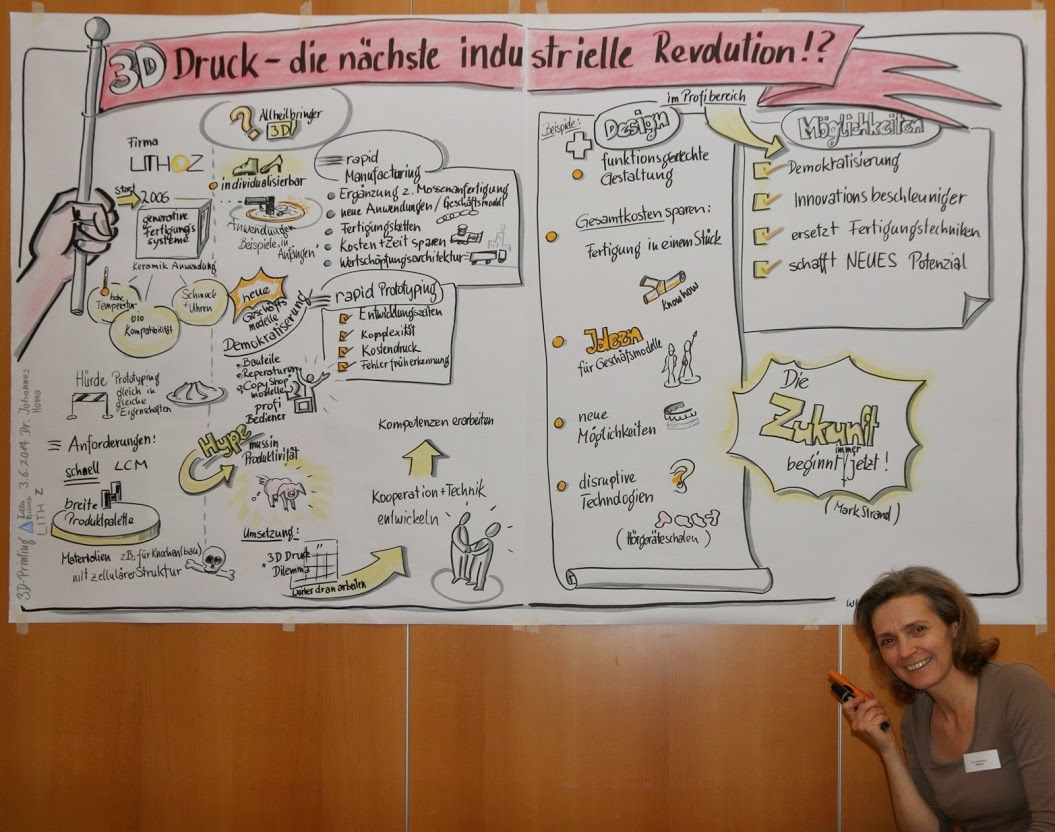 3D Druck - die nächste industrielle Revolution!?
Firma
LITHOZ
start
2006
generative
Fertigungs
systeme
Keramik Anwendung
hohe
Temperatur
bio
Kompatibilität
Schmuck
+ Uhren
Hürde Prototyping
gleich in
gleiche
Eigenschaften
Anforderungen!
schnell LCM
breite
Produktpalette
Materialien z.B. für Knochen(bau)
mit zellulärer Struktur
3D-Printing
3.6.2014 Dr. Johannes
Homa
LITH Z
?
Allheilbringer
3D
individualisierbar
Anwendungen
Beispiele in
Anfängen
neue
Geschäfts
modelle
Demokratisierung
• Bauteile
• Reperaturen
• Copy Shop
modelle
profi
Bediener
Hype
muss in
Produktivität
Umsetzung:
• 3D Druck
Dilemma
weiter dran arbeiten
rapid
Manufacturing
• Ergänzung z. Massenanfertigung
• neue Anwendungen / Geschäftsmodel
• Fertigungsketten
• Kosten + Zeit sparen
• Wertschöpfungsarchitektur
rapid Prototyping
Entwicklungszeiten
Komplexität
Kostendruck
Fehlerfrüherkennung
Kompetenzen erarbeiten
Kooperation + Technik
entwickeln
Beispiele:
Design
funktionsgerechte
Gestaltung
Gesamtkosten sparen:
Fertigung in einem Stück
Know how
Ideen
für Geschäfsmodelle
neue
Möglichkeiten
disruptive
Technologien
?
(Hörgeräteschalen)
im Profibereich
Möglichkeiten
Demokratisierung
Innovationsbeschleuniger
ersetzt Fertigungstechniken
schafft NEUES Potenzial
Die
Zukunft
immer
beginnt / jetzt!
(Mark Strand)